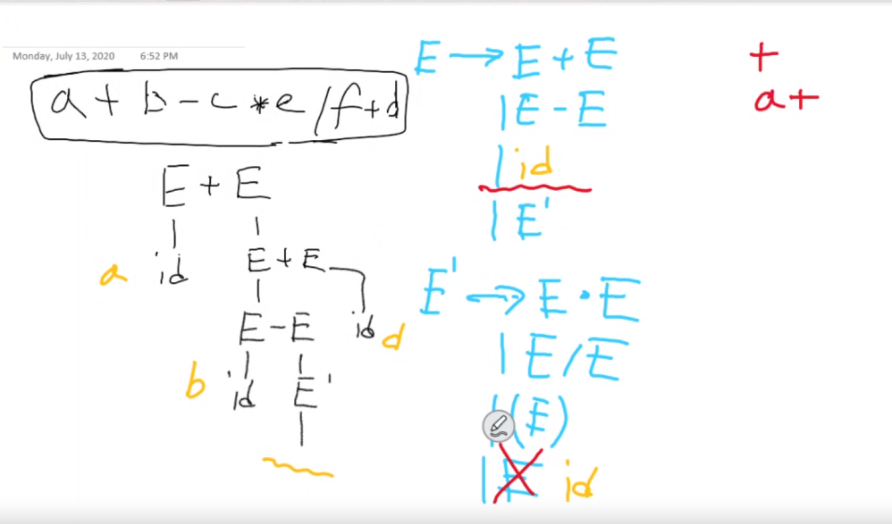 Monday, July 13, 2020 6:52 PM
a + b - c * e / f + d
E + E
id
E + E
a
E - E
id d
b id E'
E → E + E
| E - E
| id
| E'
E' → E · E
| E / E
| (E)
| E id
+
a +